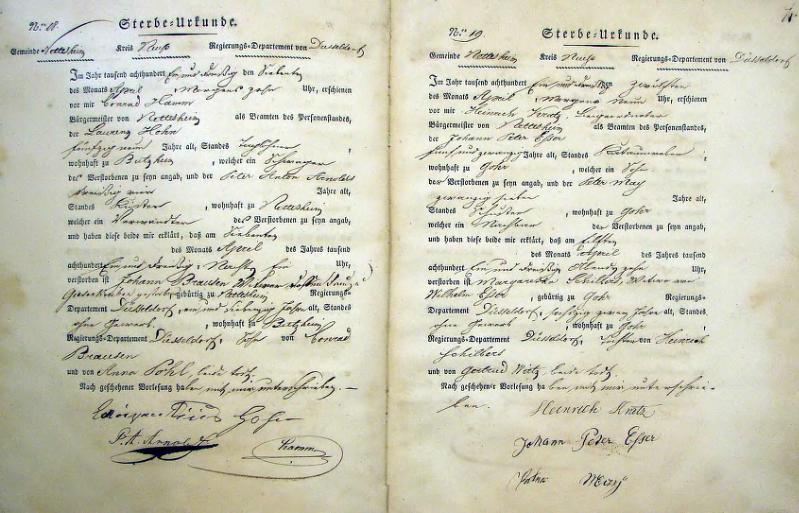 No. 18.
Sterbe-Urkunde.
Gemeinde Nettesheim Kreis Neuss Regierungs-Departement von Düsseldorf
Im Jahr tausend achthundert Ein und dreißig den Siebenten
des Monats April Morgens zehn Uhr, erschienen
vor mir Conrad Hamm
Bürgermeister von Nettesheim als Beamten des Personenstandes,
der Laurenz Hohn
fünfzig neun Jahre alt, Standes
wohnhaft zu Butzheim, welcher ein Schwager
des Verstorbenen zu seyn angab, und der Peter Anton Arnolds
dreißig vier Jahre alt,
Standes Küster, wohnhaft zu Nettesheim
welcher ein Verwandter des Verstorbenen zu seyn angab,
und haben diese beide mir erklärt, daß am Siebenten
des Monats April des Jahres tausend
achthundert Ein und dreißig Nachts ein Uhr
verstorben ist Johann Brausen
gebürtig zu Nettesheim Regierungs-
Departement Düsseldorf, Jahre alt, Standes
ohne Gewerb, wohnhaft zu Butzheim
Regierungs-Departement Düsseldorf, Sohn von Conrad
Brausen
und von Anna Pohl, beide todt.
Nach geschehener Vorlesung haben mit mir unterschrieben.
Hohn
P. A. Arnolds
Hamm
No. 19.
Sterbe-Urkunde.
Gemeinde Nettesheim Kreis Neuss Regierungs-Departement von Düsseldorf
Im Jahr tausend achthundert Ein und dreißig zwölften
des Monats April Morgens neun Uhr, erschienen
vor mir Heinrich
Bürgermeister von Nettesheim als Beamten des Personenstandes,
der Johann Peter Esser
fünf und zwanzig Jahre alt, Standes
wohnhaft zu Gohr, welcher ein Sohn
der Verstorbenen zu seyn angab, und der Peter May
zwanzig sieben Jahre alt,
Standes Schuster, wohnhaft zu Gohr
welcher ein Nachbar der Verstorbenen zu seyn angab,
und haben diese beide mir erklärt, daß am Elften
des Monats April des Jahres tausend
achthundert Ein und dreißig Abends zehn Uhr
verstorben ist Margaretha Schilbers, Witwe von
Wilhelm Esser, gebürtig zu Gohr Regierungs-
Departement Düsseldorf, sechszig zwei Jahre alt, Standes
ohne Gewerb, wohnhaft zu Gohr
Regierungs-Departement Düsseldorf, Tochter von Heinrich
Schilbers
und von Gertrud beide todt.
Nach geschehener Vorlesung haben mit mir unterschrie-
ben.
Heinrich
Johann Peter Esser
Peter May